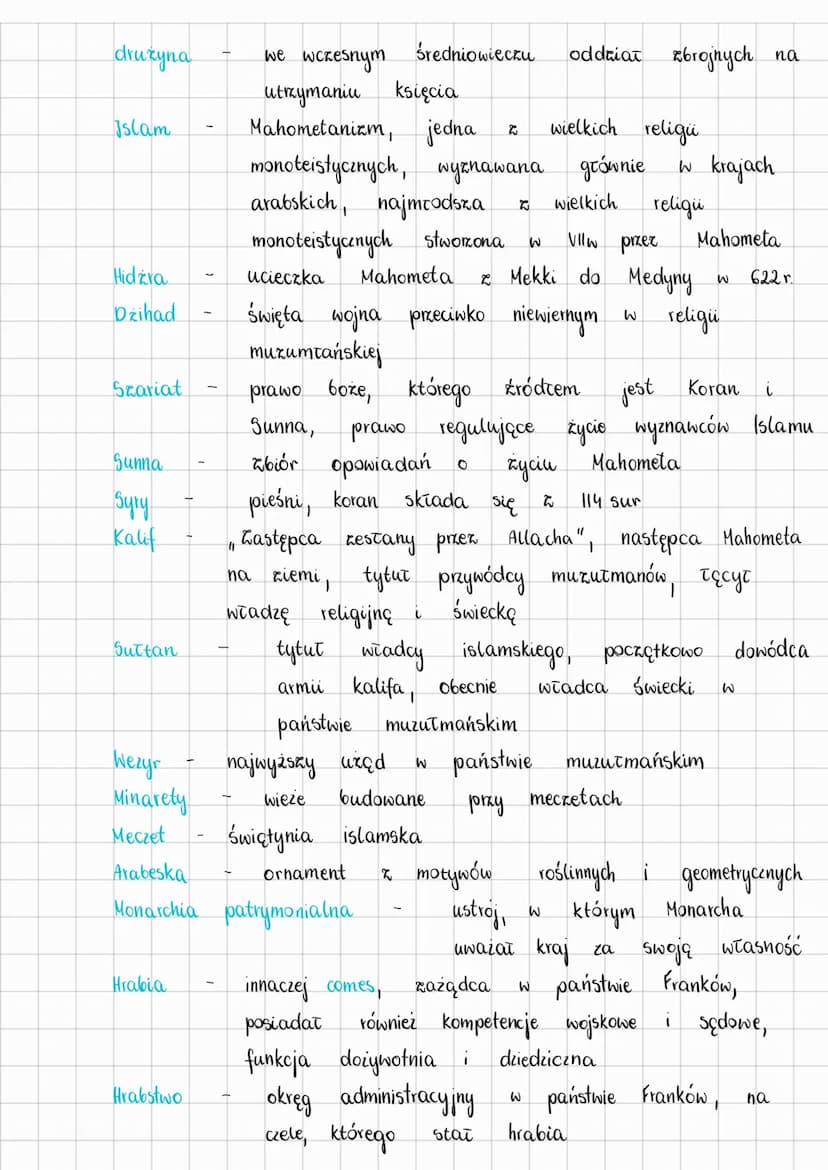 drużyna - we wczesnym średniowieczu oddział zbrojnych na
utrzymaniu księcia
Islam - Mahometanizm, jedna z wielkich religii
monoteistycznych, wyznawana głównie w krajach
arabskich, najmłodsza z wielkich religii
monoteistycznych stworzona w VIIw przez Mahometa
Hidżra - ucieczka Mahometa z Mekki do Medyny w 622r.
Dżihad - święta wojna przeciwko niewiernym w religii
muzumłańskiej
Szariat - prawo boże, którego źródłem jest Koran i
Sunna, prawo regulujące życie wyznawców Islamu
Sunna - zbiór opowiadań o życiu Mahometa
Syry - pieśni, koran składa się z 114 sur
Kalif - „Zastępca zesłany przez Allacha", następca Mahometa
na ziemi, tytuł przywódcy muzułmanów, łączył
władzę religijną i świecką
Sułtan - tytuł władcy islamskiego, początkowo dowódca
armii kalifa, obecnie władca świecki w
państwie muzułmańskim
Wezyr - najwyższy urząd w państwie muzułmańskim
Minarety - wieże budowane przy meczetach
Meczet - świątynia islamska
Arabeska - ornament z motywów roślinnych i geometrycznych
Monarchia patrymonialna - ustrój, w którym Monarcha
uważał kraj za swoją własność
Hrabia - innaczej comes, zażądca w państwie Franków,
posiadał również kompetencje wojskowe i sądowe,
funkcja dożywotnia i dziedziczna
Hrabstwo - okręg administracyjny w państwie Franków, na
czele, którego stał hrabia